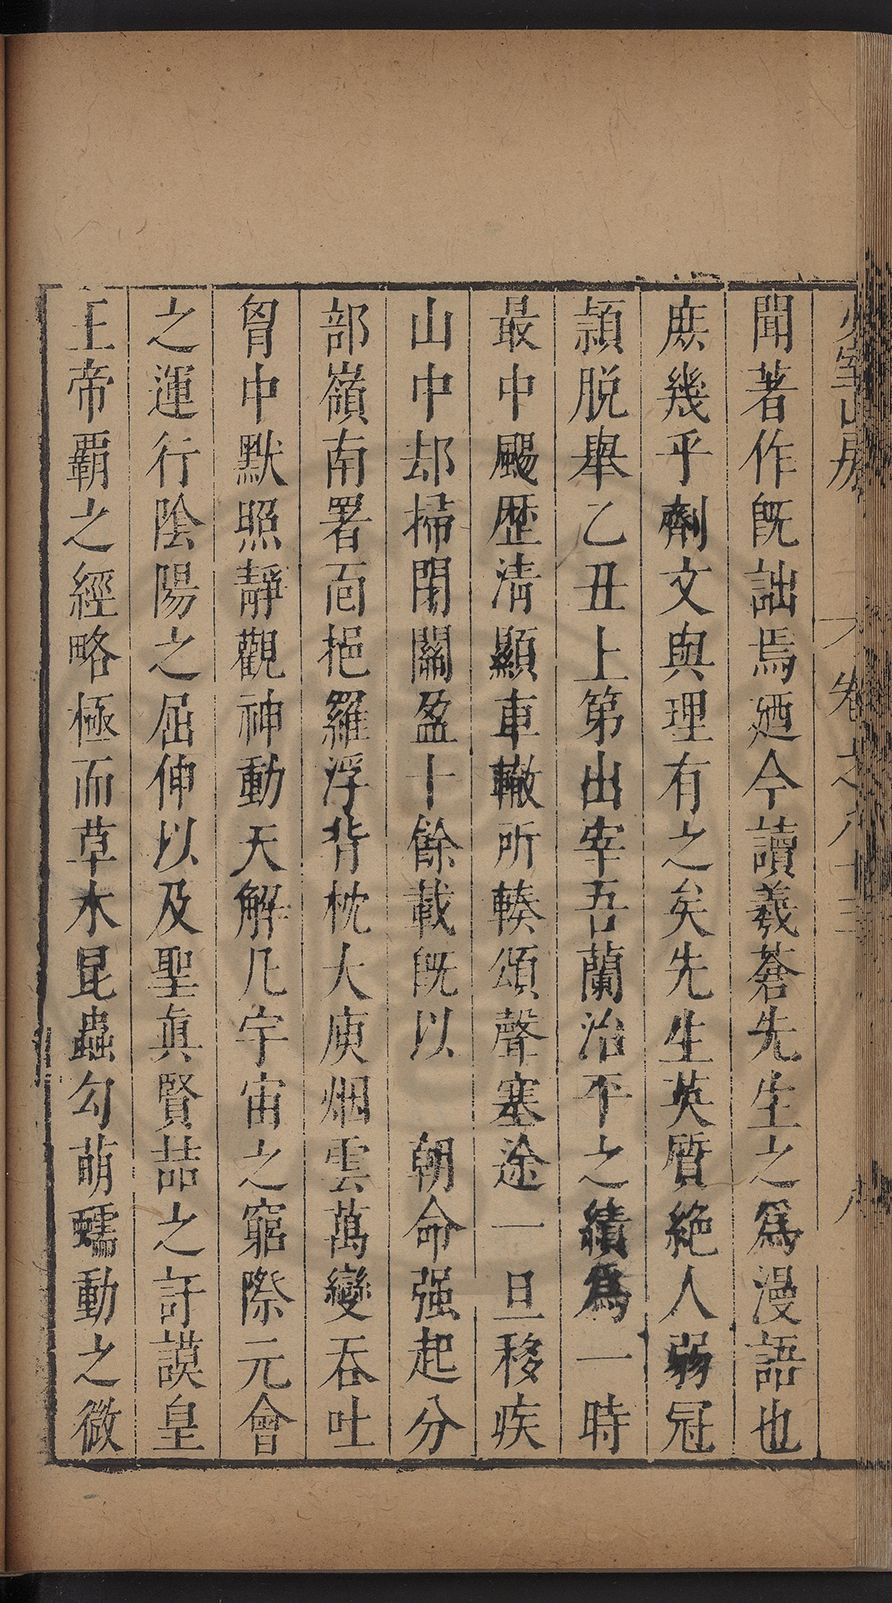 少室山房 卷之八十三 八
聞著作旣詘焉廼今讀羲蒼先生之爲漫語也
庶幾乎劑文與理有之矣先生英質絶人弱冠
頴脱舉乙丑上第出宰吾蘭治平之績爲一時
最中颺歷清顯車轍所輳頌聲塞途一旦移疾
山中却掃閉關盈十餘載旣以　朝命强起分
部嶺南署百挹羅浮背枕大庾烟雲萬變吞吐
胷中默照靜觀神動天解凡宇宙之窮際元會
之運行陰陽之屈伸以及聖眞賢喆之訏謨皇
王帝覇之經略極而草木昆蟲勾萌蠕動之微